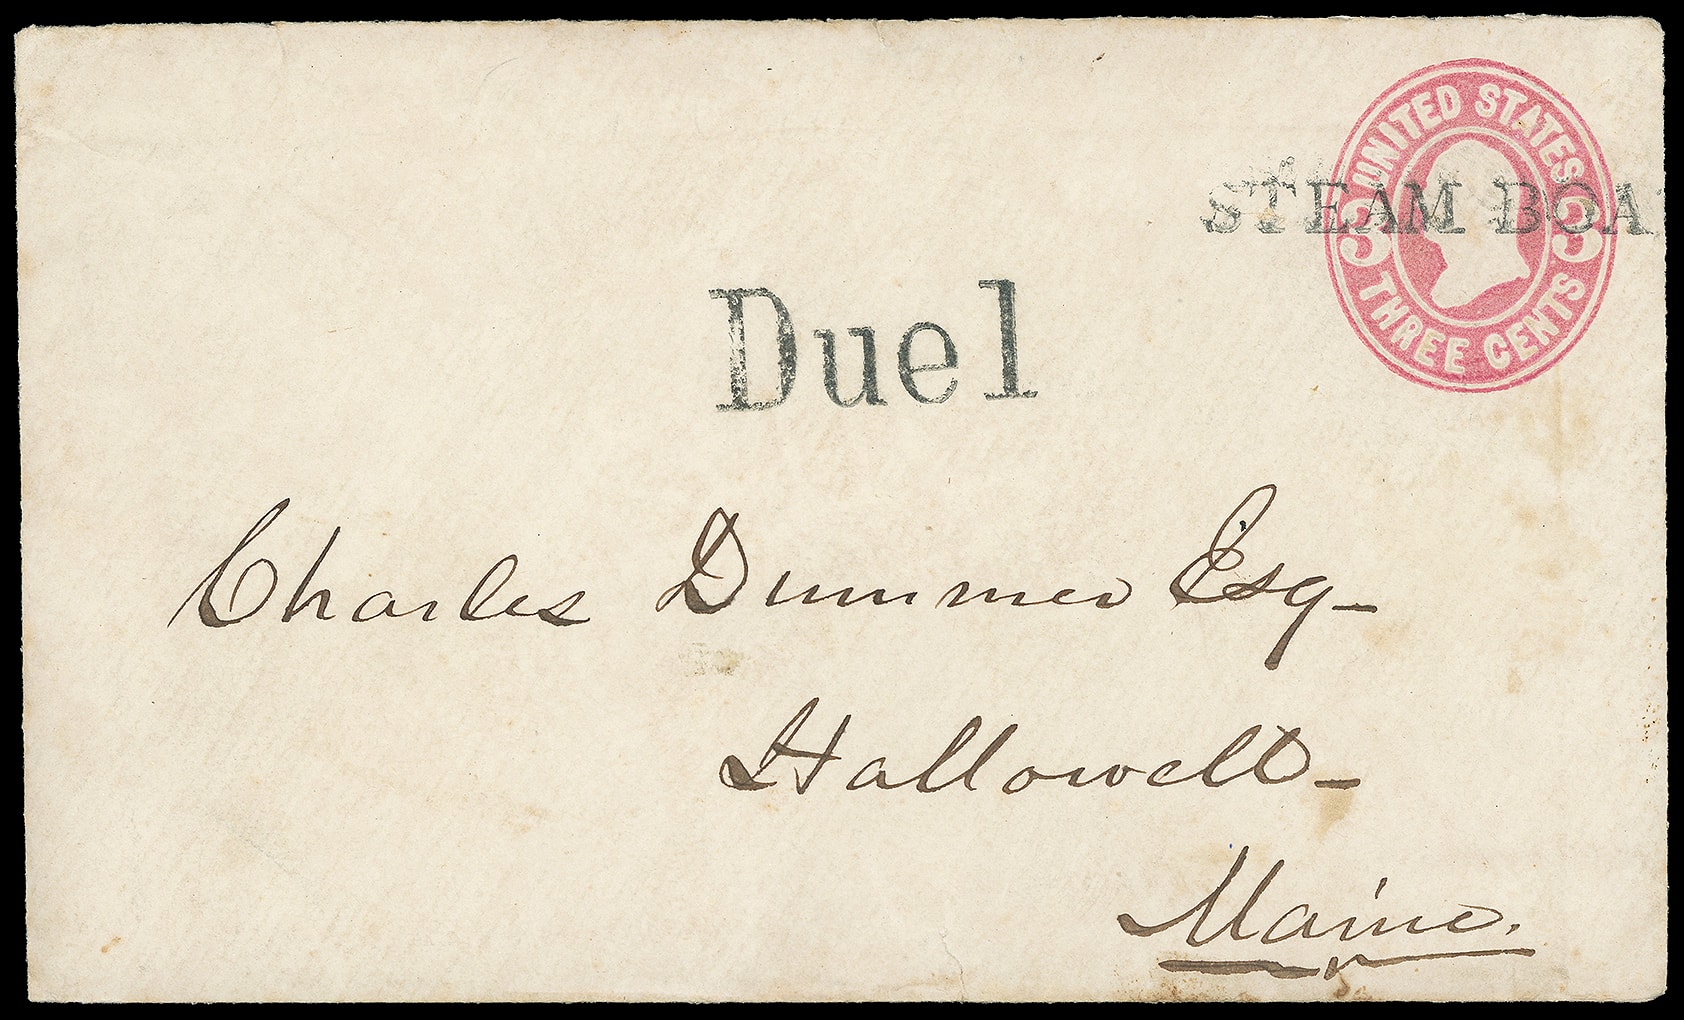 UNITED STATES
3 3
THREE CENTS
STEAM BOA
Due 1
Charles Dummer Esq-
Hallowell-
Maine.